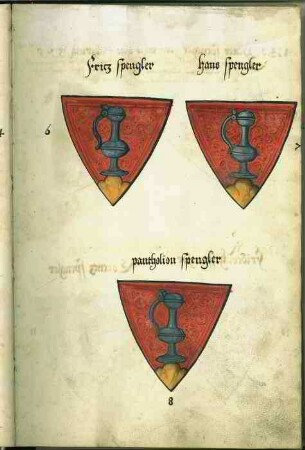 Fritz spengler
hans spengler
4
6
7
pantholion spengler
8